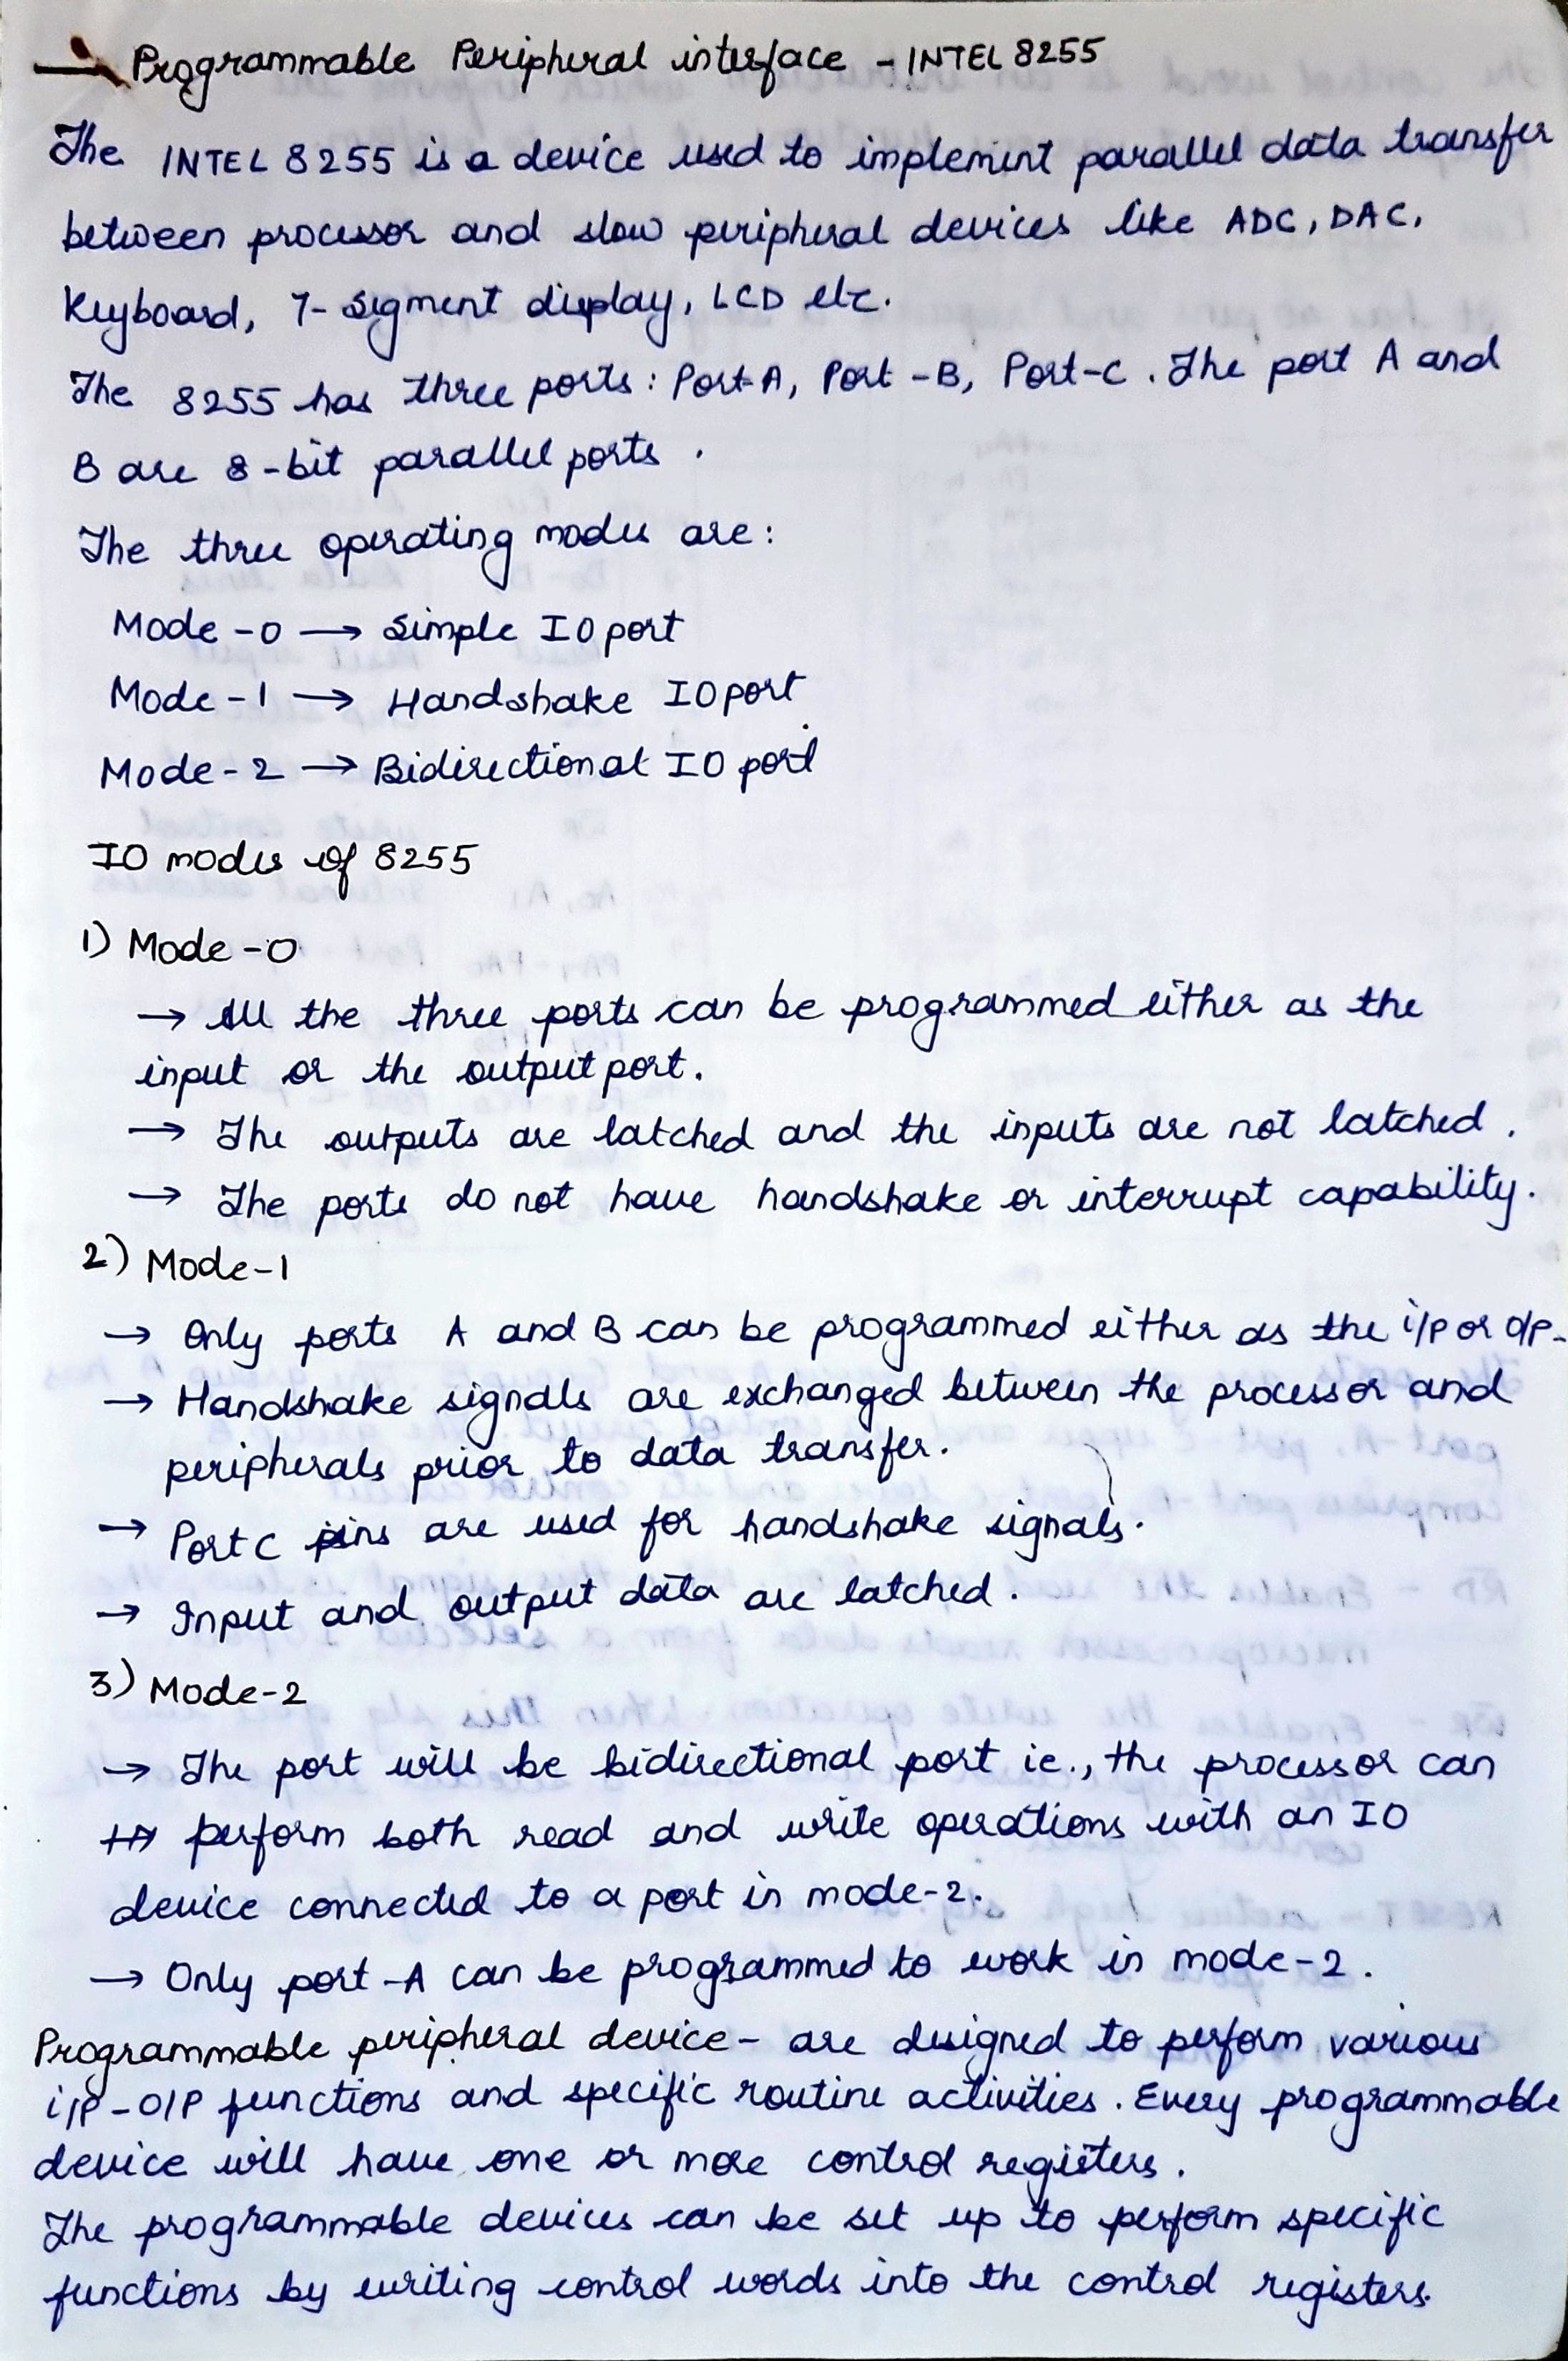 → Programmable Peripheral interface - INTEL 8255
The INTEL 8255 is a device used to implement parallel data transfer
between processor and slow peripheral devices like ADC, DAC,
Keyboard, 7-segment display, LCD etc.
The 8255 has three ports: Port-A, Port-B, Port-C. The port A and
B are 8-bit parallel ports.
The three operating modes are:
Mode-0 → Simple IO port
Mode-1 → Handshake IO port
Mode-2 → Bidirectional IO port
IO modes of 8255
1) Mode-0
→ All the three ports can be programmed either as the
input or the output port.
→ The outputs are latched and the inputs are not latched.
→ The ports do not have handshake or interrupt capability.
2) Mode-1
→ Only ports A and B can be programmed either as the i/p or o/p.
→ Handshake signals are exchanged between the processor and
peripherals prior to data transfer.
→ Port C pins are used for handshake signals.
→ Input and output data are latched.
3) Mode-2
→ The port will be bidirectional port ie., the processor can
perform both read and write operations with an IO
device connected to a port in mode-2.
→ Only port-A can be programmed to work in mode-2.
Programmable peripheral device - are designed to perform various
i/p-o/p functions and specific routine activities. Every programmable
device will have one or more control registers.
The programmable devices can be set up to perform specific
functions by writing control words into the control registers.